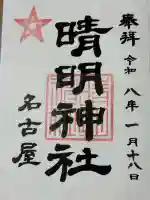 奉拝
令和八年一月十八日
晴明神社
名古屋